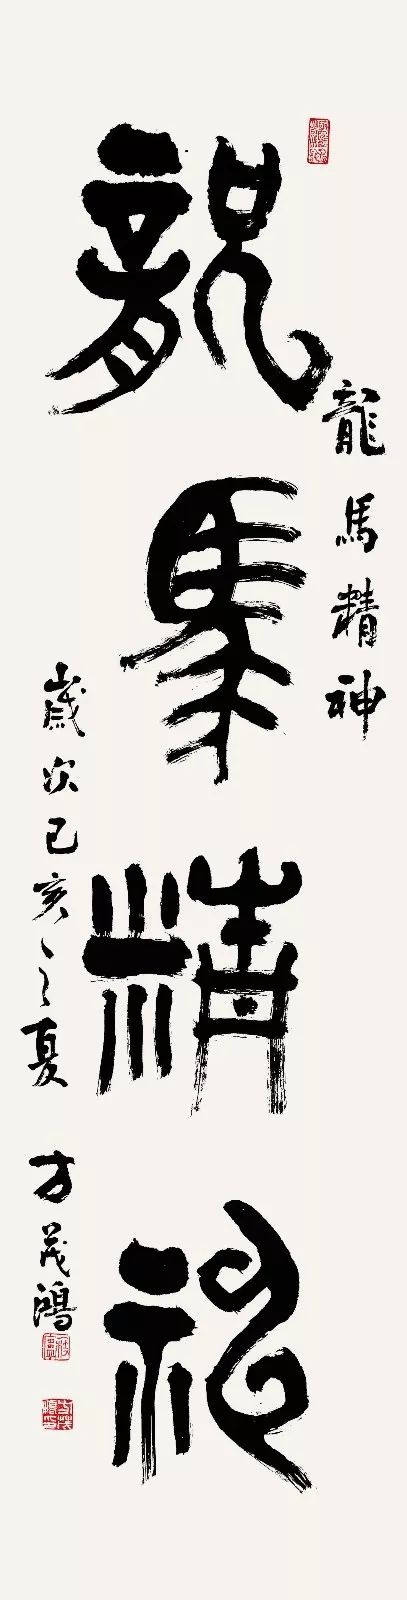 龍馬精神
龍馬精神
歲次己亥之夏 方茂鴻